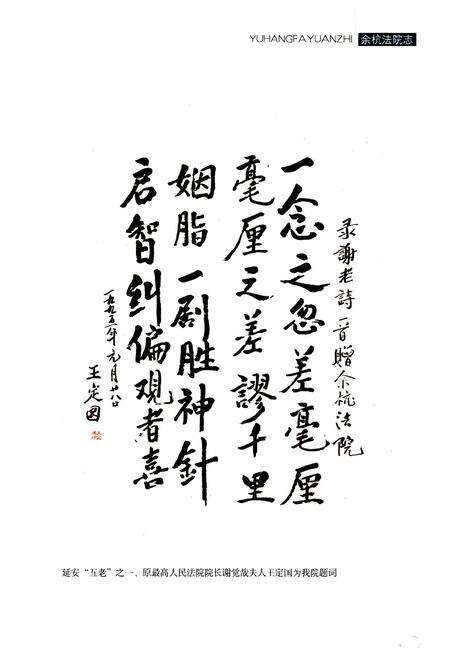 YUHANGFAYUANZHI 余杭法院志
录謝老詩一首贈余杭法院
一念之忽差毫厘
毫厘之差謬千里
姻脂一剧胜神針
启智纠偏观者喜
一九九五年元月廿八日
王定国
延安“五老”之一、原最高人民法院院长谢觉哉夫人王定国为我院题词